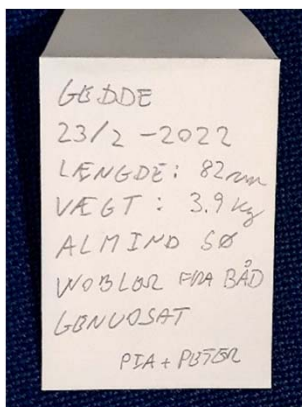 GEDDE
23/2 -2022
LÆNGDE: 82cm
VÆGT: 3.9 Kg
ALMIND SØ
WOBLER FRA BÅD
GENUDSAT
PIA + PETER